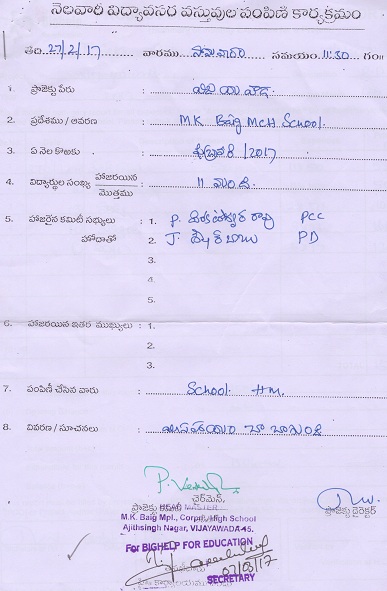 నెలవారీ విద్యావసర వస్తువుల పంపిణి కార్యక్రమం
తేది 27/2/17 వారము సోమవారం సమయం 11:30 గం॥
1. ప్రాజెక్టు పేరు :
2. ప్రదేశము / ఆవరణ : M.K Baig McH School.
3. ఏ నెల కొఱకు : ఫిబ్రవరి /2017
4. విద్యార్థుల సంఖ్య హాజరయిన / మొత్తము : 11 మంది.
5. హాజరైన కమిటీ సభ్యులు : 1. P. రావు PCC
హోదాతో 2. J. బాబు PD
3.
4.
5.
6. హాజరయిన ఇతర ముఖ్యులు : 1.
2.
3.
7. పంపిణీ చేసిన వారు : School. HM.
8. వివరణ / సూచనలు :
ఛైర్మెన్,
ప్రాజెక్టు కమిటీ HEAD MASTER ప్రాజెక్టు డైరెక్టర్
M.K. Baig Mpl., Corpn. High School
Ajithsingh Nagar, VIJAYAWADA-45.
For BIGHELP FOR EDUCATION
07/03/17
SECRETARY